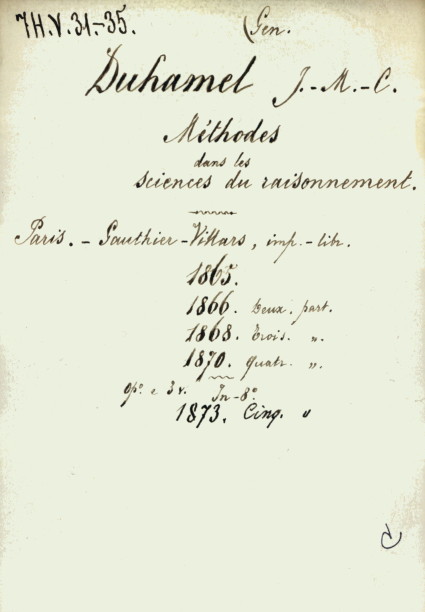 7H.V.31.-35. (Gen.
Duhamel J.-M.-C.
Méthodes
dans les
sciences du raisonnement.
Paris. - Gauthier-Villars, imp.-libr.
1865.
1866. Deux. part.
1868. Trois. „.
1870. Quatr. „.
In-8°.
1873. Cinq. „